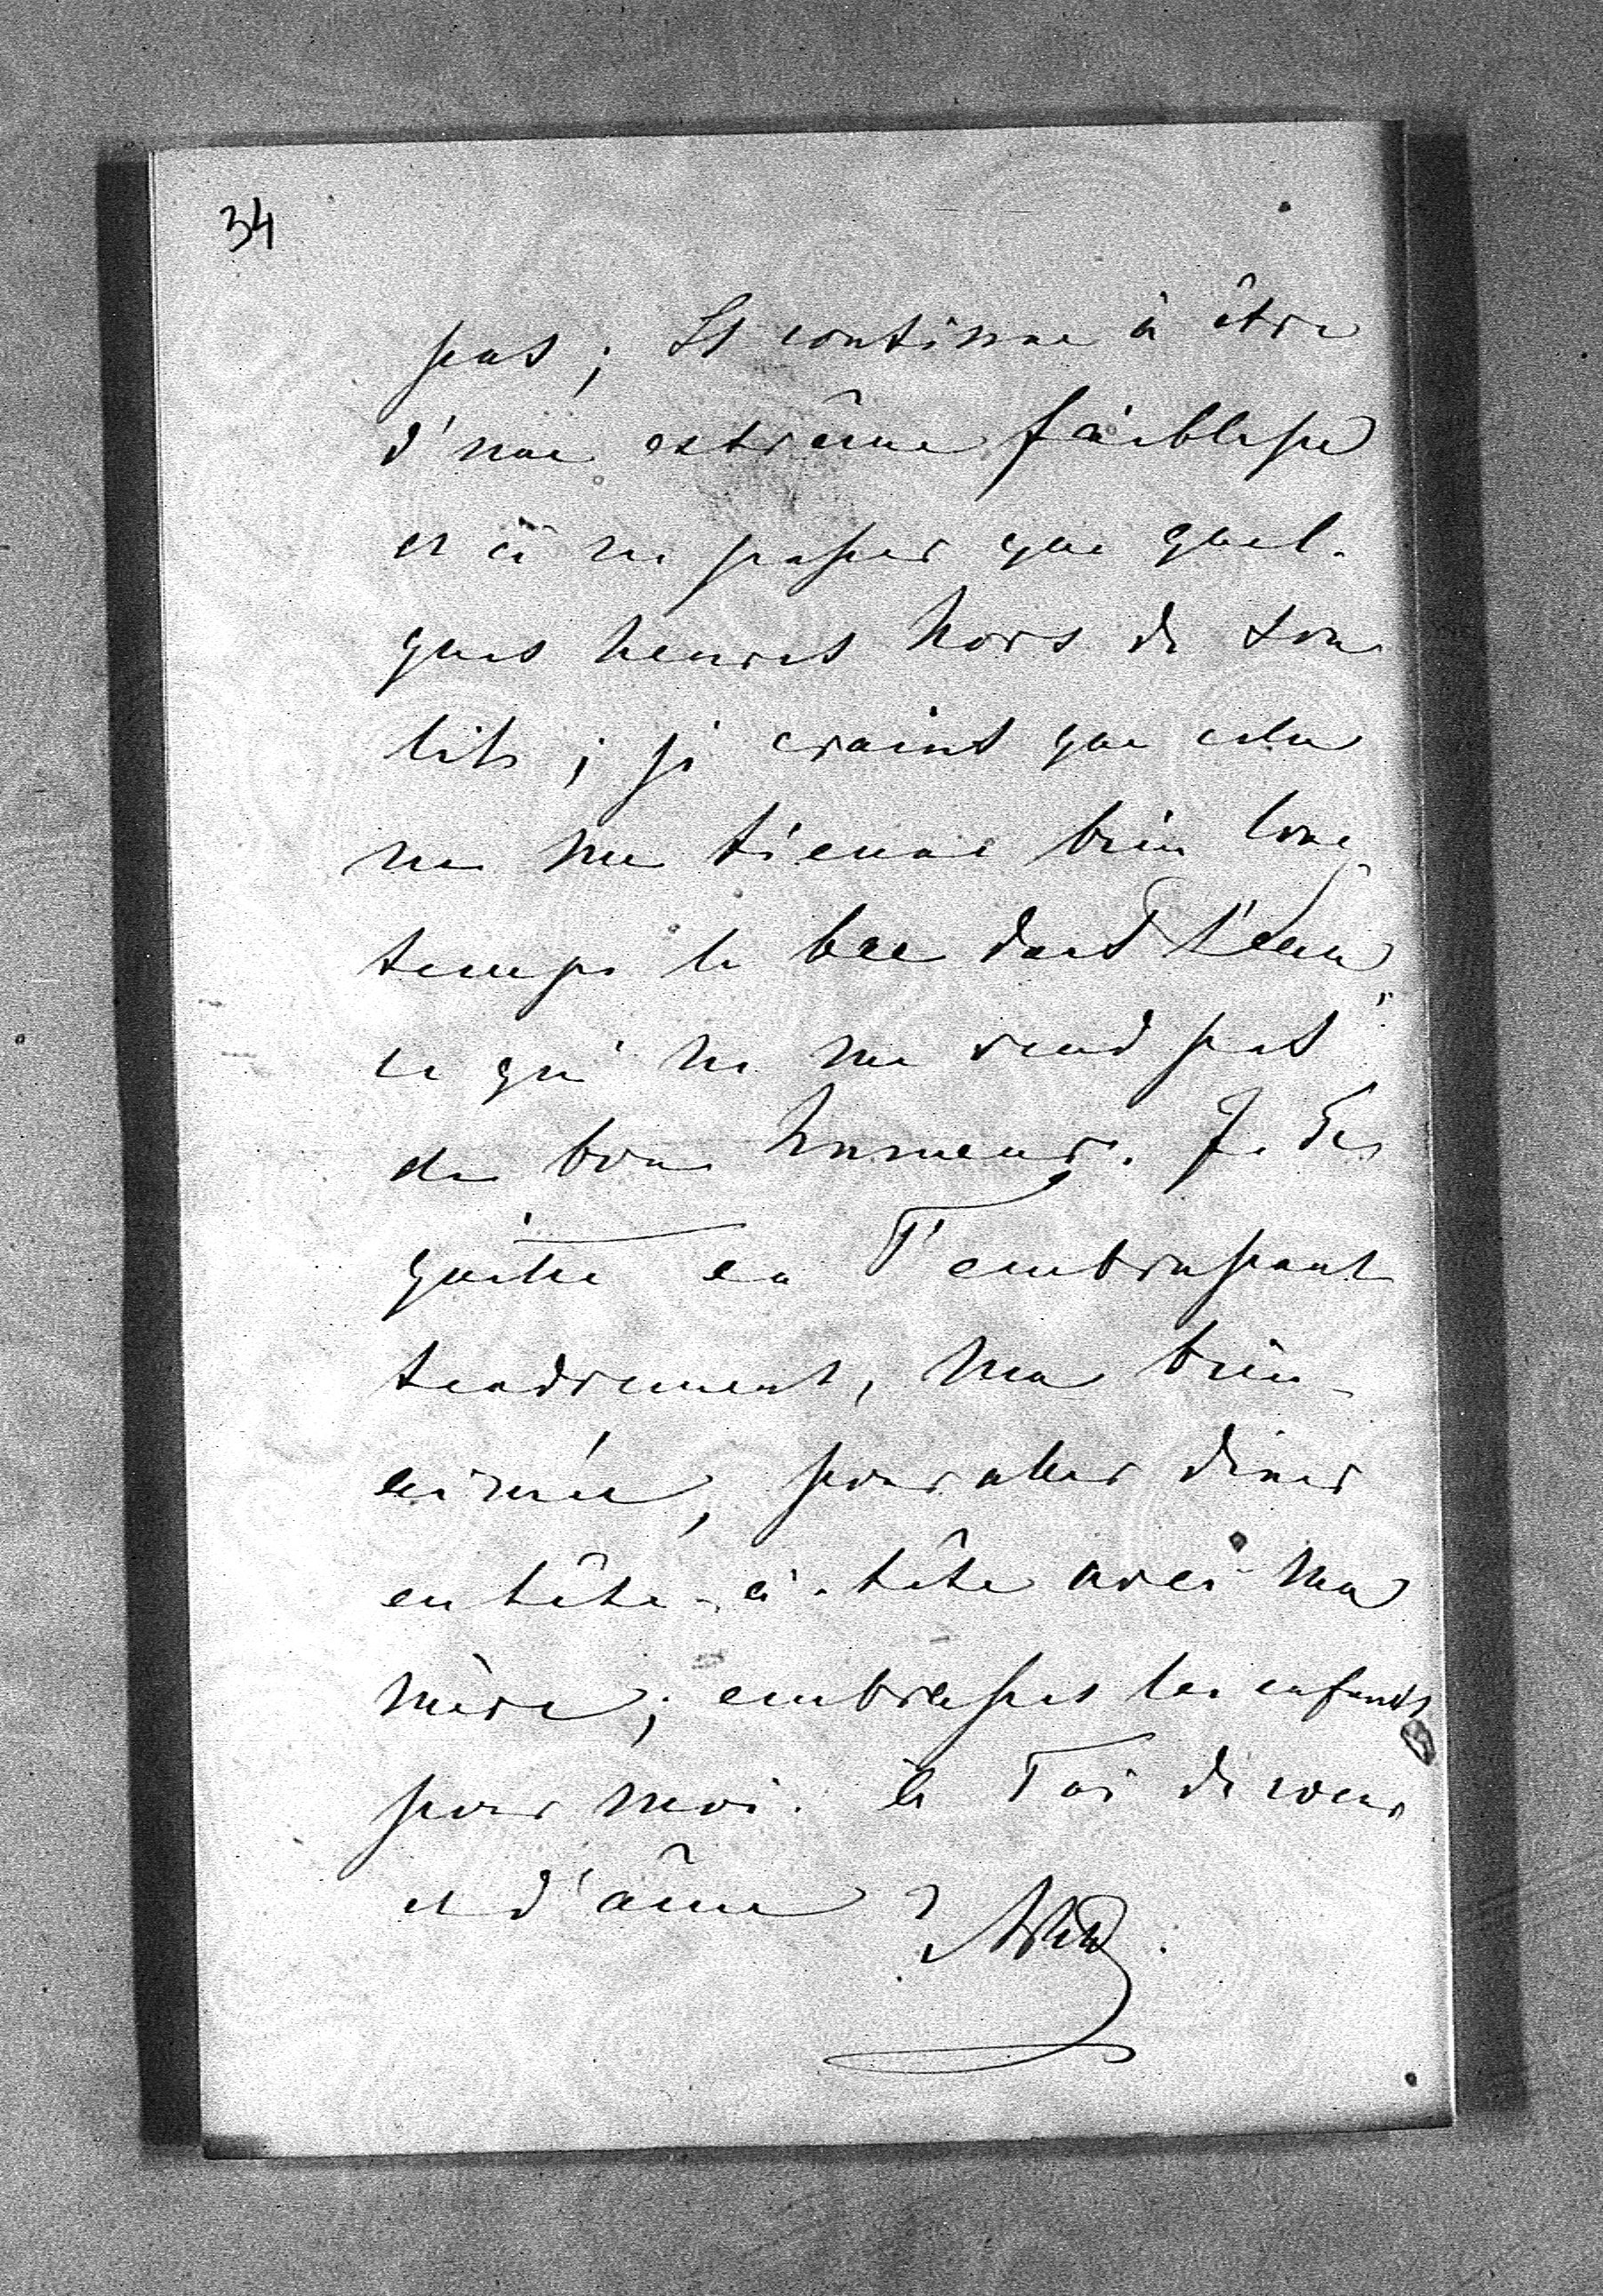 34
pas; Il continue à être
d'une extrême faiblesse
et à ne passer que quel-
ques heures hors de son
lit; je craint que cela
ne me tienne bien long
temps le bec dans l'eau
ce qui ne me rend pas
de bone humeur. Je Te
quitte en T'embrassant
tendrement, ma bien-
aimée, pour aller diner
en tête-à-tête avec ma
mère; embrasses les enfants
pour moi. à Toi de cœur
et d'âme